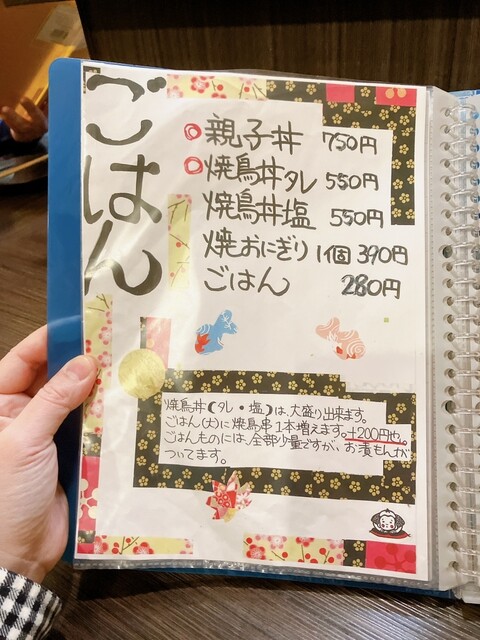 ごはん
◎親子丼 750円
◎焼鳥丼タレ 550円
焼鳥丼塩 550円
焼おにぎり 1個 390円
ごはん 280円
焼鳥丼(タレ・塩)は、大盛り出来ます。
ごはん(大)に焼鳥串1本増えます。+200円也。
ごはんものには、全部少量ですが、お漬もんが
ついてます。